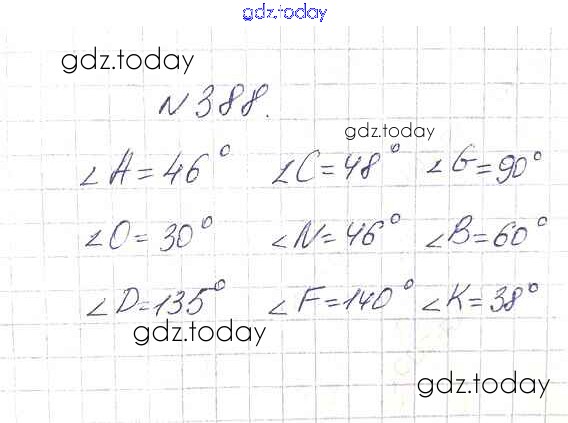 gdz.today
gdz.today
N 388.
gdz.today
∠A = 46° ∠C = 48° ∠G = 90°
∠O = 30° ∠N = 46° ∠B = 60°
∠D = 135° ∠F = 140° ∠K = 38°
gdz.today
gdz.today